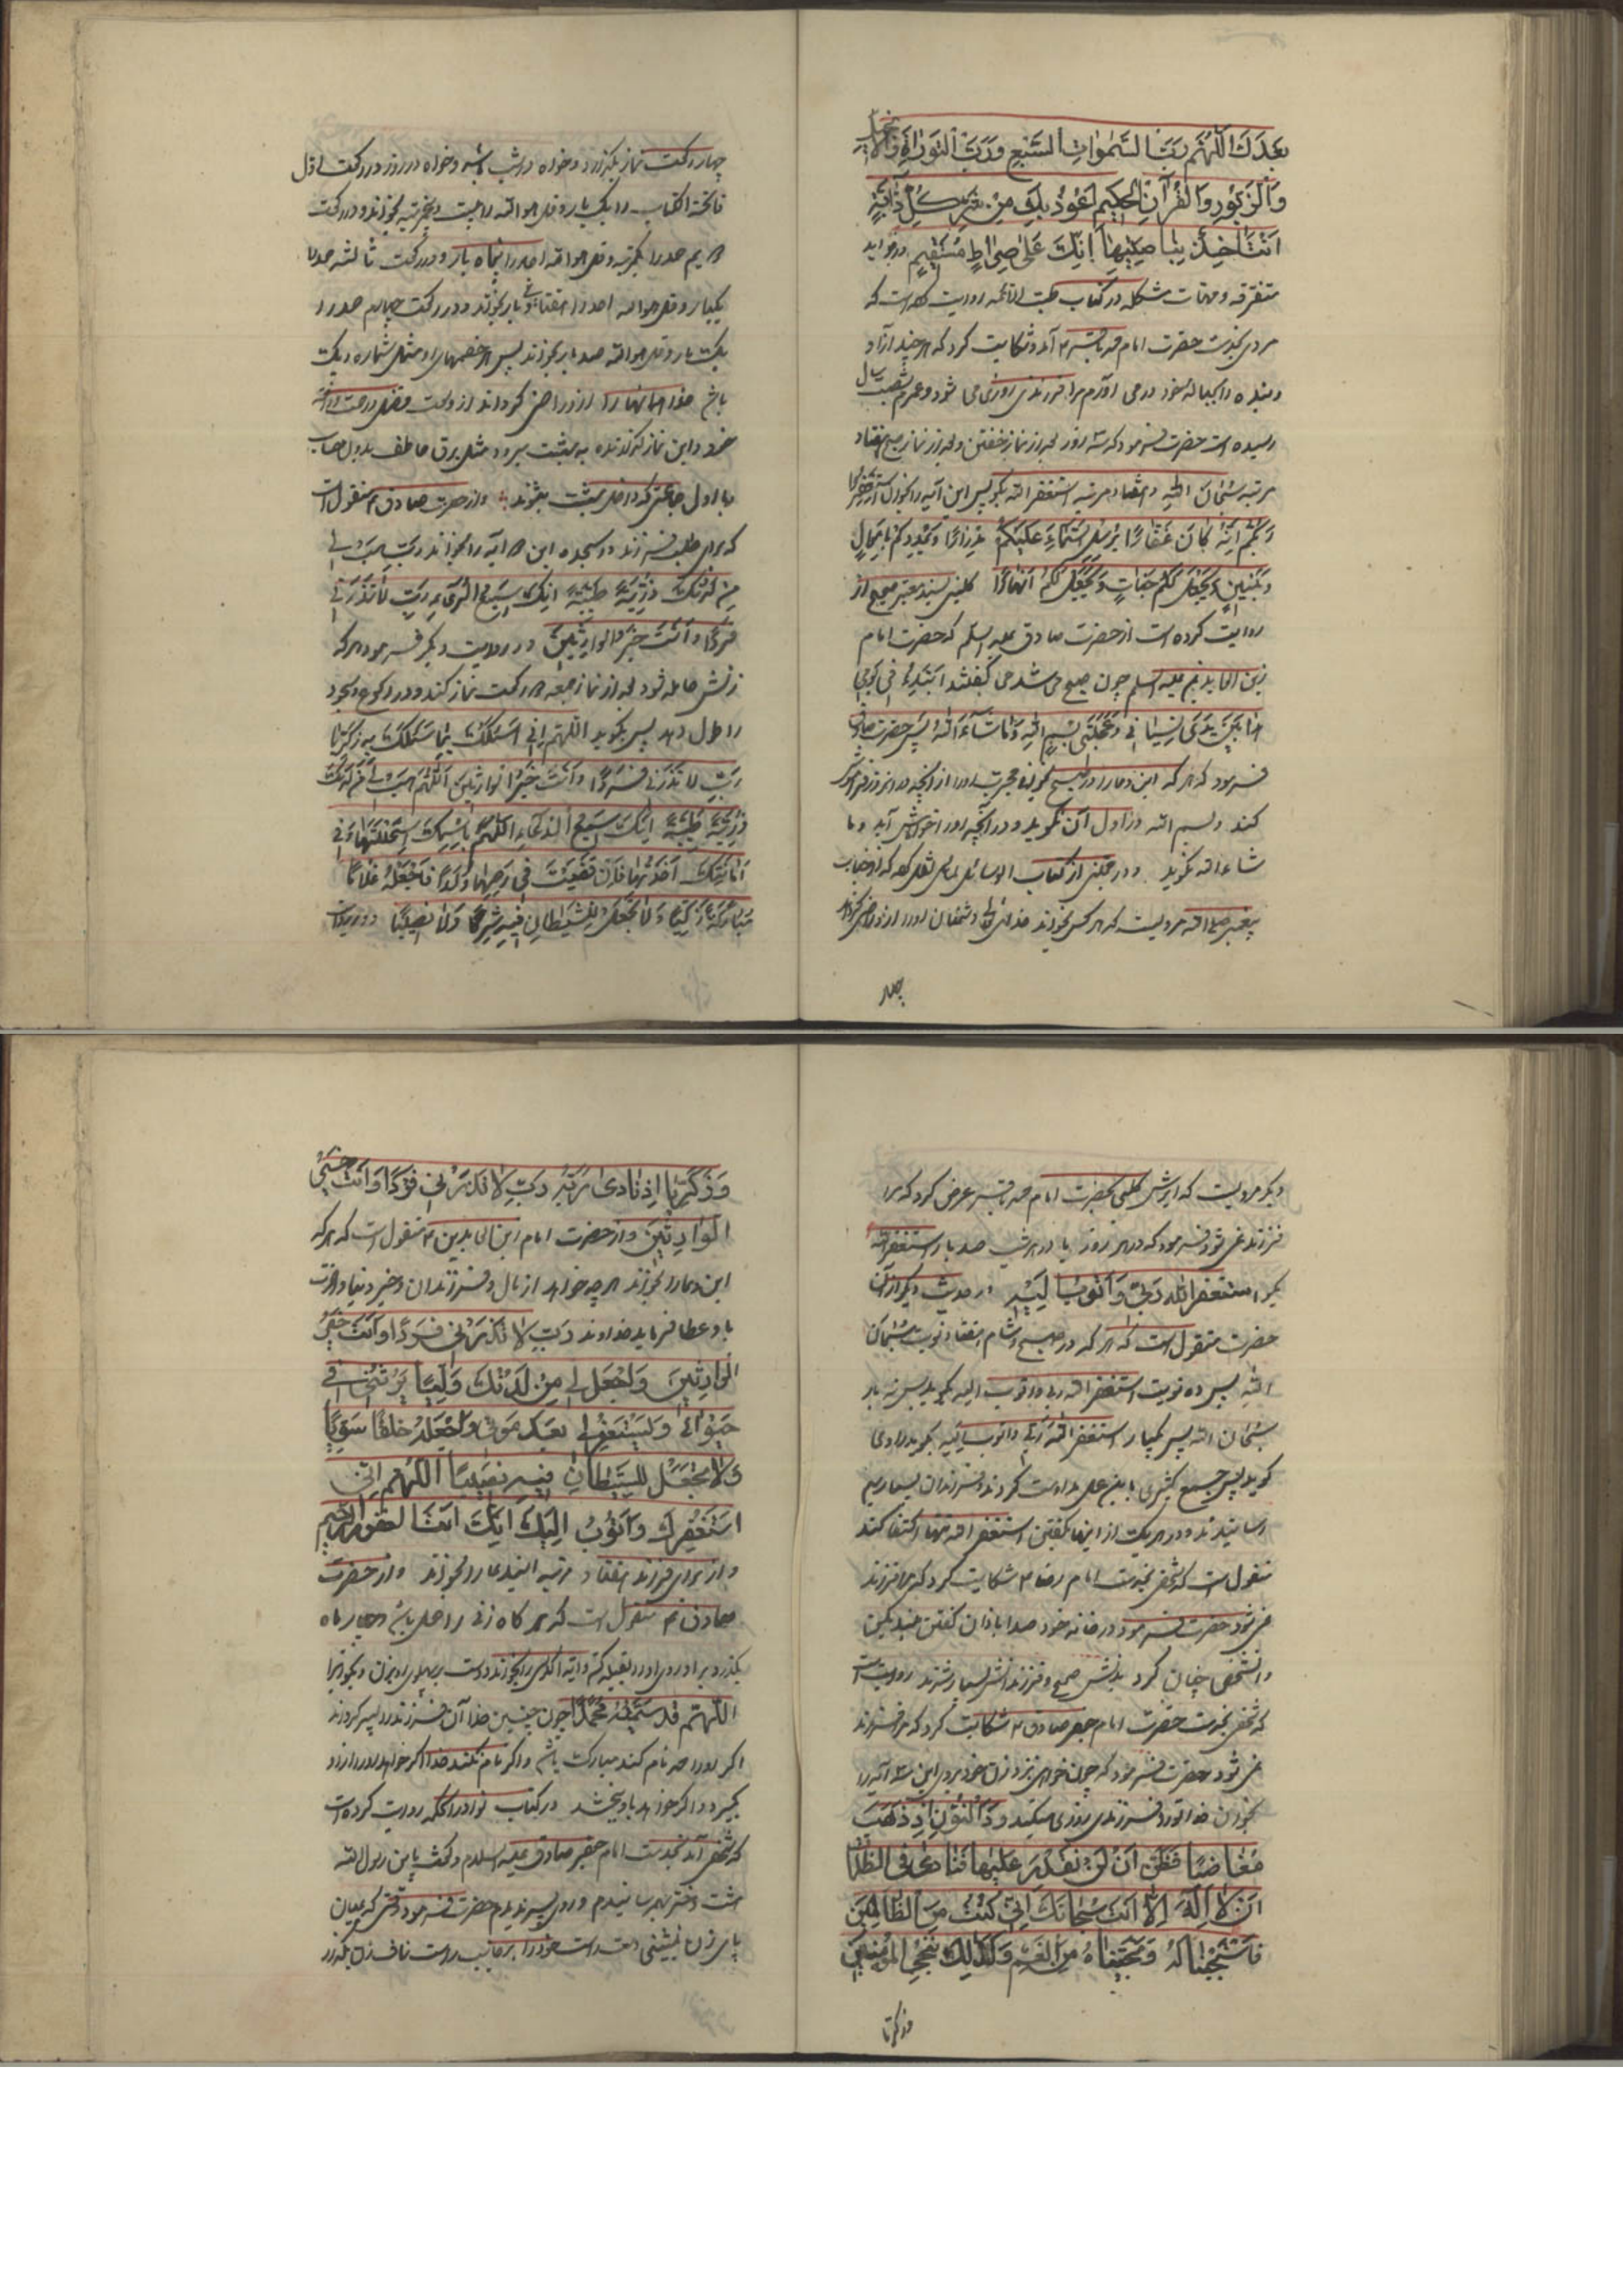 بعدك اللهم رب السموات السبع و رب التوراة والانجيل
و الزبور والقرآن الحكيم اعوذ بك من شر كل دابة
انت اخذ بناصيتها انك على صراط مستقيم در فوايد
متفرقه و مهمات مشكله در كتاب طب الائمه روايت كرده است كه
مردى بخدمت حضرت امام محمد باقر ۴ آمد و شكايت كرد كه هر چند آزاد
و بنده را بحباله خود در مى آورم مرا فرزندى روزى نمى شود و عمرم بشصت سال
رسيده است حضرت فرمود كه سه روز بعد از نماز خفتن و بعد از نماز صبح هفتاد
مرتبه سبحان الله و هفتاد مرتبه استغفر الله بگو پس اين آيه را بخوان استغفروا
ربكم انه كان غفارا يرسل السماء عليكم مدرارا و يمددكم باموال
و بنين و يجعل لكم جنات و يجعل لكم انهارا كلينى بسند معتبر صحيح از
روايت كرده است از حضرت صادق عليه السلم كه حضرت امام
زين العابدين عليه السلم چون صبح مى شد مى گفتند ابتدئ فى يومى
هذا بين يدى نسيانى و عجلتى بسم الله و ما شاء الله پس حضرت صادق
فرمود كه هر كه اين دعا را در صبح بخواند
كند و بسم الله در اول آن نگويد و در آنچه او را خوش آيد و ما
شاء الله نگويد و در بعضى از كتاب الوسائل الى المسائل نقل كرده كه از جناب
پيغمبر صلى الله مرويست كه هر كس بخواند خداى تعالى دشمنان او را از او راضى گرداند
چهار
چهار ركعت نماز بگذارد و خواه در شب باشد و خواه در روز در ركعت اول
فاتحة الكتاب را يك بار و قل هو الله را بيست و پنج مرتبه بخواند و در ركعت
دويم حمد را يكمرتبه و قل هو الله احد را پنجاه بار و در ركعت ثالثه حمد را
يكبار و قل هو الله احد را هفتاد و پنج بار بخواند و در ركعت چهارم حمد را
يك بار و قل هو الله صد بار بخواند پس اگر خصمهاى او مثل شماره ريگ
باشد خدا همه آنها را از او راضى گرداند از وسعت فضل و رحمت
خود و اين نماز گذارنده به بهشت ميرود مثل برق خاطف بدون حساب
با اول جماعتى كه داخل بهشت بشوند و از حضرت صادق ۴ منقول است
كه براى طلب فرزند در سجده اين دو آيه را بخواند رب هب لى
من لدنك ذرية طيبة انك سميع الدعاء رب لا تذرنى
فردا و انت خير الوارثين و در روايت ديگر فرمود هر كه
زنش حامله نشود بعد از نماز جمعه دو ركعت نماز كند و در ركوع و سجود
را طول دهد پس بگويد اللهم انى اسئلك بما سئلك به زكريا
رب لا تذرنى فردا و انت خير الوارثين اللهم هب لى من لدنك
ذرية طيبة انك سميع الدعاء اللهم باسمك استحللتها و فى
امانتك اخذتها فان قضيت فى رحمها ولدا فاجعله غلاما
مباركا زكيا و لا تجعل للشيطان فيه شركا و لا نصيبا و در روايت
ديگر مرويست كه ابرش كلبى بحضرت امام محمد باقر عرض كرد كه مرا
فرزند نمى شود فرمود كه در هر روز يا در هر شب صد بار استغفر الله
بگو استغفر الله ربى و اتوب اليه در حديث ديگر از آن
حضرت منقول است كه هر كه در صبح و شام هفتاد نوبت سبحان
الله پس ده نوبت استغفر الله ربى و اتوب اليه بگويد پس نه بار
سبحان الله پس يكبار استغفر الله ربى و اتوب اليه بگويد راوى
گويد پس جمع كثيرى باين عمل مداومت كردند و فرزندان بسيار بهم
رسانيدند و در هر يك از اينها بگفتن استغفر الله تنها اكتفا كند
منقول است كه شخصى بخدمت امام رضا ۴ شكايت كرد كه مرا فرزند
نمى شود حضرت فرمود در خانه خود صدا باذان گفتن بلند كن
و آن شخص چنان كرد بدنش صحيح و فرزندانش بسيار شدند روايت است
كه شخصى بخدمت حضرت امام جعفر صادق ۴ شكايت كرد كه مرا فرزند
نمى شود حضرت فرمود كه چون خواهى نزد زن خود بروى اين سه آيه را
بخوان خدا تو را فرزندى روزى ميكند و ذا النون اذ ذهب
مغاضبا فظن ان لن نقدر عليها فنادى فى الظلمات
ان لا اله الا انت سبحانك انى كنت من الظالمين
فاستجبنا له و نجيناه من الغم و كذلك ننجى المؤمنين
وزكريا
و زكريا اذ نادى ربه رب لا تذرنى فردا و انت خير
الوارثين و از حضرت امام زين العابدين ۴ منقول است كه هر كه
اين دعا را بخواند هر چه خواهد از مال و فرزندان و خير دنيا و آخرت
باو عطا فرمايد خداوند رب لا تذرنى فردا و انت خير
الوارثين و اجعل لى من لدنك وليا يرثنى فى
حيوتى و يستغفر لى بعد موتى و اجعله خلقا سويا
و لا تجعل للشيطان فيه نصيبا اللهم انى
استغفرك و اتوب اليك انك انت الغفور الرحيم
و از براى فرزند هفتاد مرتبه اين دعا را بخواند و از حضرت
صادق ۴ منقول است كه هر گاه زنى را حمل باشد و چهار ماه
بگذرد بر او روى او را بقبله كند و آية الكرسى را بخواند و دست بر پهلوى او بزن و بگو
اللهم قد سميته محمدا چون چنين خدا آن فرزند را پسر گرداند
اگر او را محمد نام كند مبارك باشد و اگر نام نكند خدا اگر خواهد او را از او
بگيرد و اگر خواهد باو بخشد در كتاب نوادر الحكمه روايت كرده است
كه شخصى آمد بخدمت امام جعفر صادق عليه السلام و گفت يا بن رسول الله
هشت دختر بهم رسانيدم و روى پسر نديدم حضرت فرمود وقتى كه ميان
پاى زن بنشينى دست راست خود را بر جانب راست ناف زن بگذار